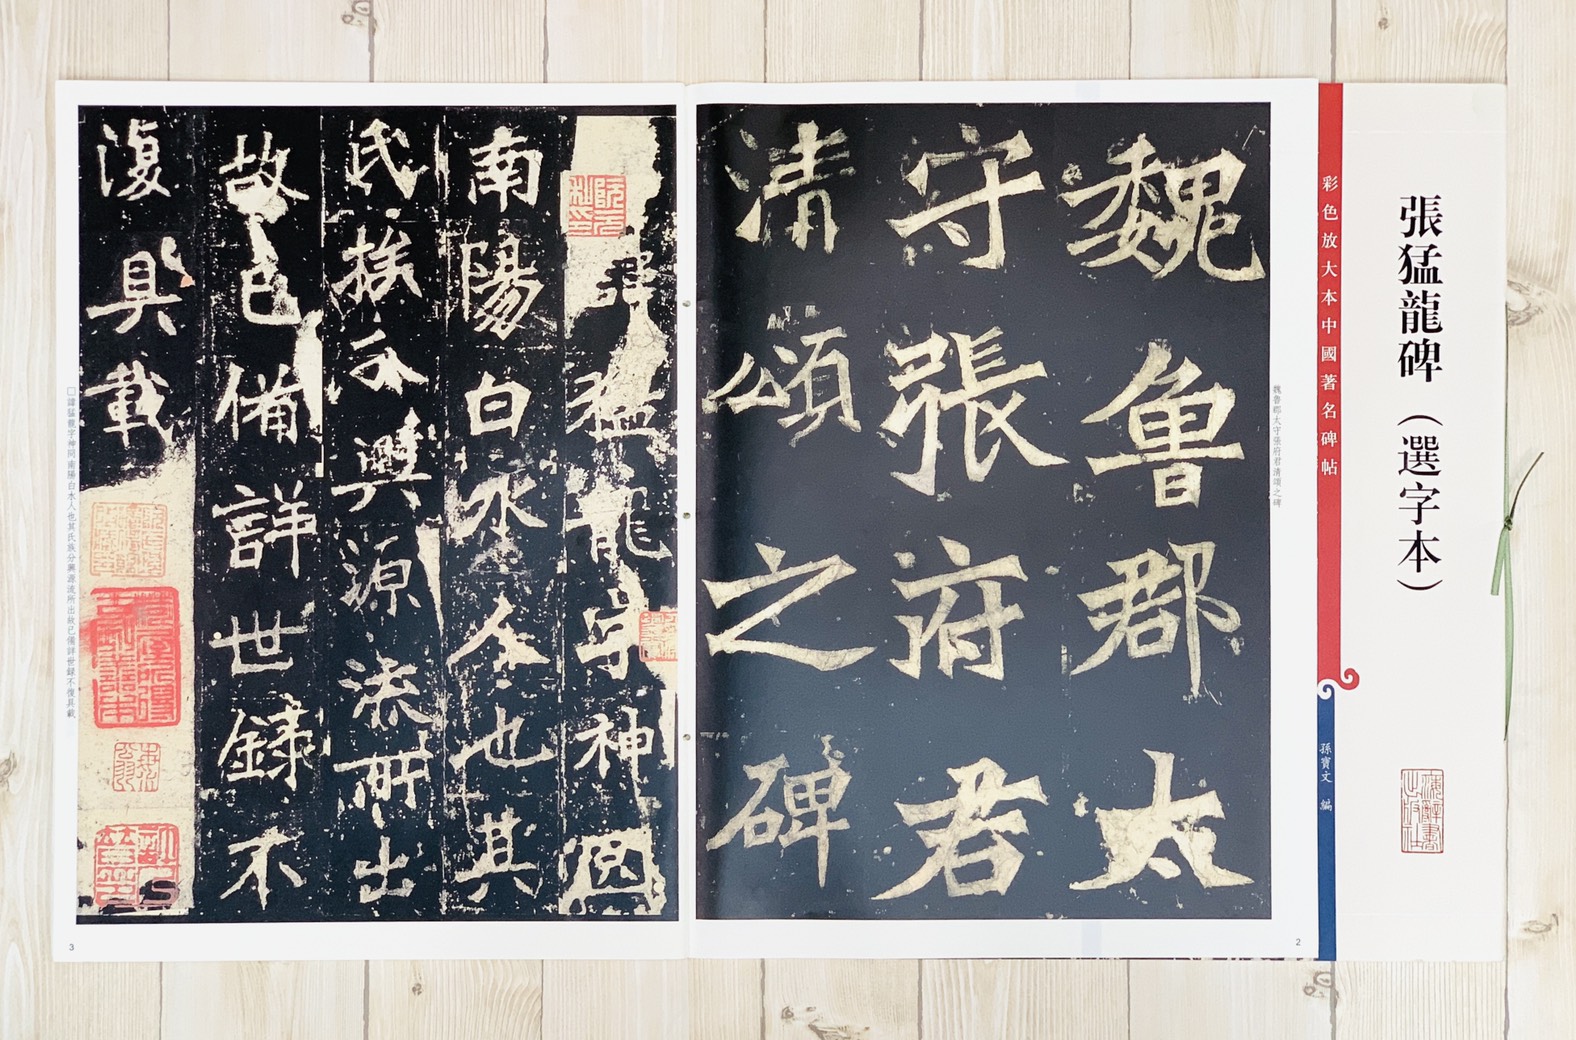 張猛龍碑（選字本）
彩色放大本中國著名碑帖
孫寶文 編
魏魯郡太守張府君清頌之碑
魏魯郡太
守張府君
清頌之碑
2
猛龍字神囧
南陽白水人也其
氏族分興源流所出
故已備詳世録不
復具載
□諱猛龍字神囧南陽白水人也其氏族分興源流所出故已備詳世録不復具載
3